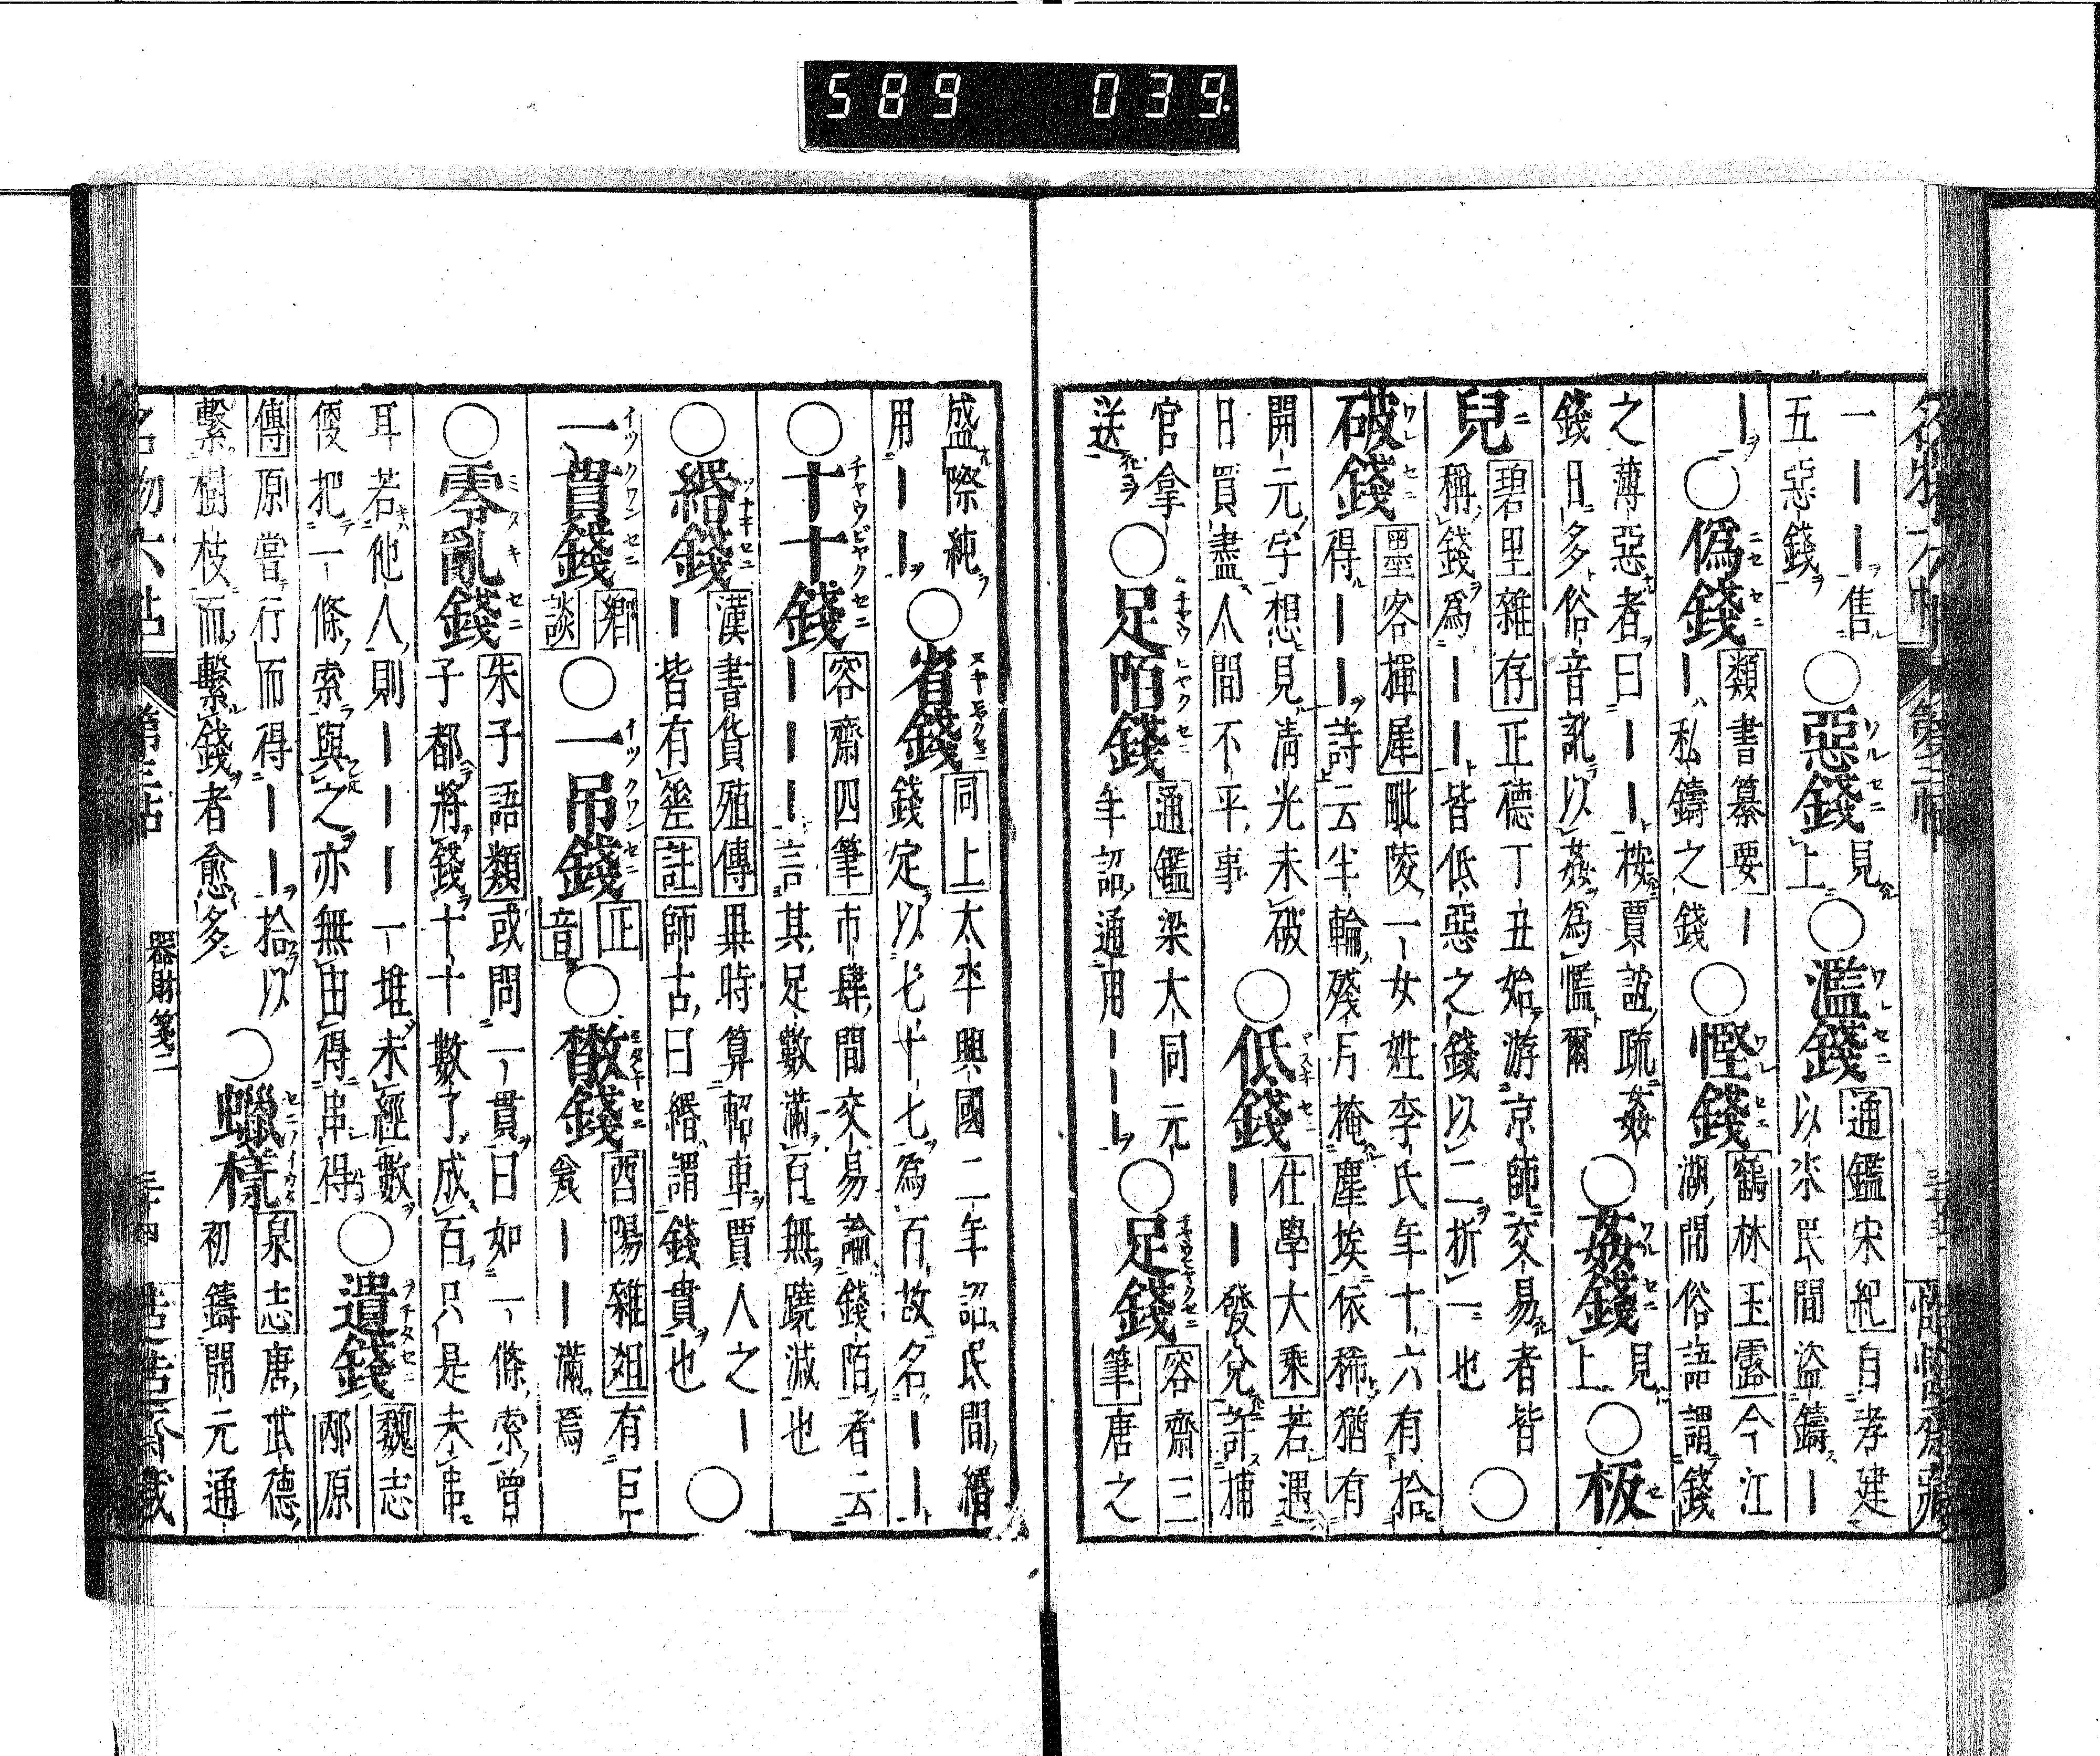 589 039
一｜｜售
五惡錢
○惡錢 見上
○濫錢 通鑑宋紀自孝建以來民間盜鑄｜
｜
○偽錢 類書纂要｜｜私鑄之錢
○慳錢 鶴林玉露今江湖間俗語謂錢
之薄惡者曰｜｜按賈誼疏姦
錢日多俗音訛以姦為慳爾
○姦錢 見上
○板
兒 碧里雜存正德丁丑始游京師交易者皆
稱錢為｜｜皆低惡之錢以二折一也
○
破錢 墨客揮犀毗陵一女姓李氏年十六有拾
得｜｜詩云半輪殘月掩塵埃依稀猶有
開元字想見清光未破
日買盡人間不平事
○低錢 仕學大乘若遇｜｜發兌許捕
官拿
送
○足陌錢 通鑑梁大同元年詔通用｜｜｜
○足錢 容齋三筆唐之
盛際純
用｜｜
○省錢 同上太平興國二年詔民間緡
錢定以七十七為百故名｜｜
○十十錢 容齋四筆市肆間交易論錢陌者云
｜｜｜言其足數滿百無蹺減也
○緡錢 漢書貨殖傳異時算軺車賈人之｜
｜皆有差註師古曰緡謂錢貫也
○
一貫錢 鄉談
○一吊錢 正音
○散錢 酉陽雜俎有巨
瓮｜｜滿焉
○零亂錢 朱子語類或問一貫曰如一條索曾
子都將錢十十數了成百只是未串
耳若他人則｜｜｜一堆未經數
便把一條索與之亦無由得串得
○遺錢 魏志邴原
傳原嘗行而得｜｜拾以
繫樹枝而繫錢者愈多
○蠟樣 泉志唐武德
初鑄開元通
名物六帖 第三帖 器財箋二